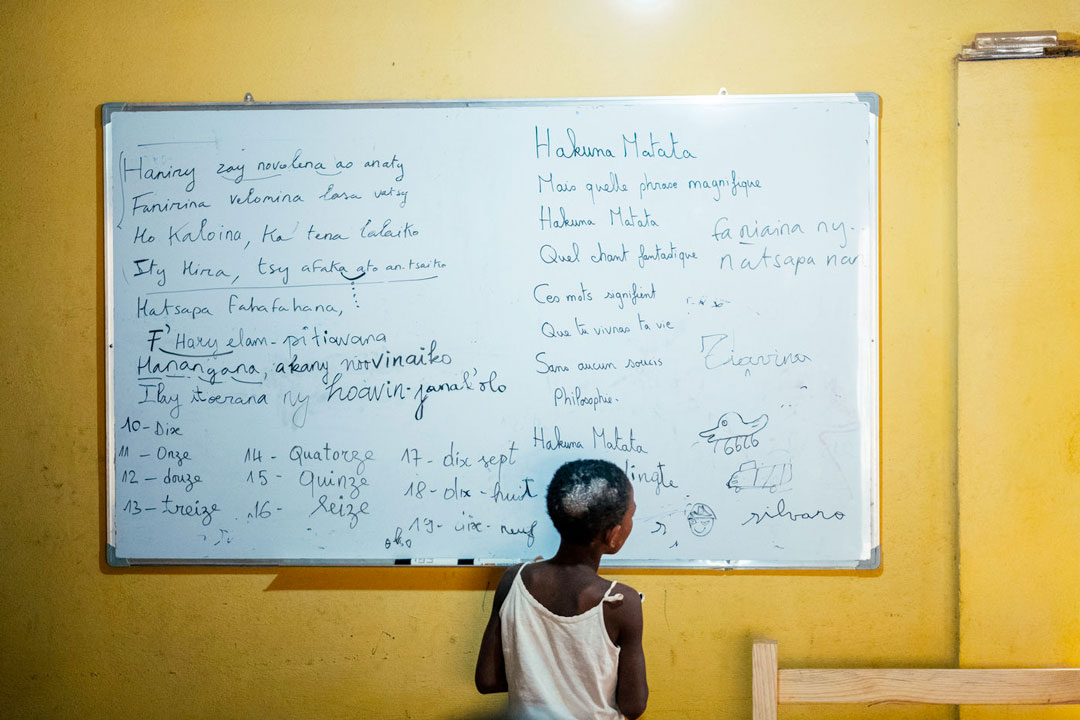 Haniry zay novolena ao anaty
Fanirina velomina lasa vatsy
Ho Kaloina, Ka tena lalaiko
Ity Hira, tsy afaka ato an-tsaiko
Hatsapa Fahafahana,
F' Hary elam-pitiavana
Manangana, akany noovinaiko
Ilay itoerana ny hoavin-janak'olo
10-Dix
11 - Onze
12 - douze
13 - treize
14 - Quatorze
15 - Quinze
16 - Seize
17 - dix sept
18 - dix - huit
19 - dix - neuf
Hakuna Matata
Mais quelle phrase magnifique
Hakuna Matata
Quel chant fantastique
Ces mots signifient
Que tu vivras ta vie
Sans aucun soucis
Philosophie.
Hakuna Matata
faniaina ny...
natsapa nan
silvaro